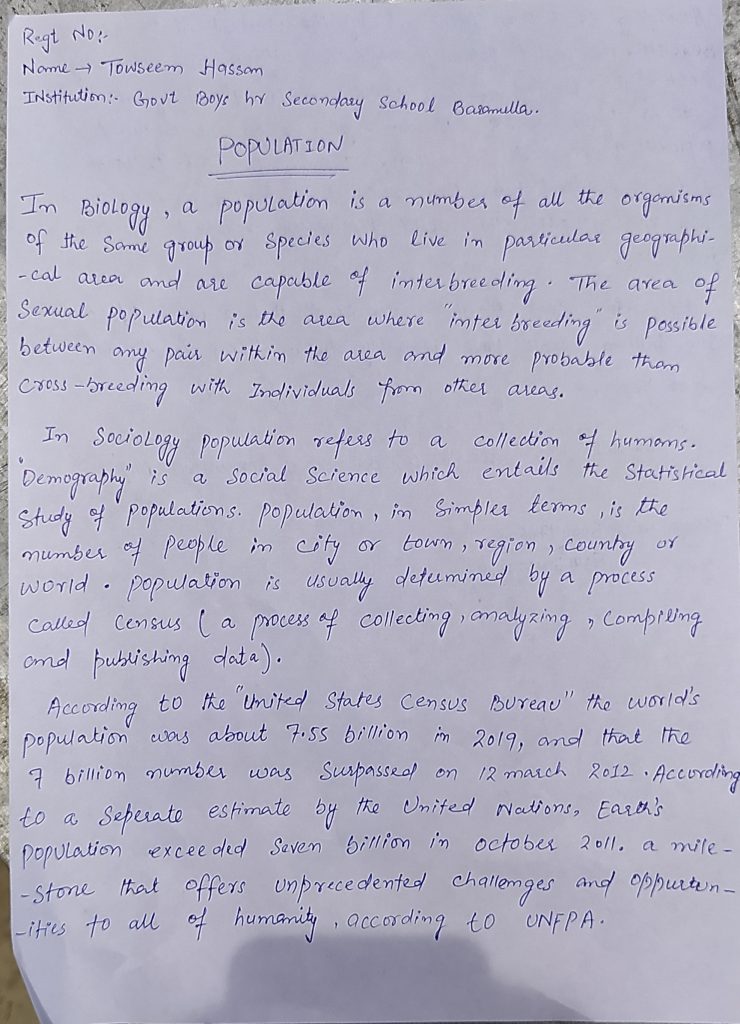 Regt No:-
Name → Towseem Hassan
Institution:- Govt Boys hr Secondary School Baramulla.
POPULATION
In Biology, a population is a number of all the organisms
of the same group or species who live in particular geographi-
-cal area and are capable of interbreeding. The area of
sexual population is the area where "inter breeding" is possible
between any pair within the area and more probable than
cross-breeding with Individuals from other areas.
In Sociology population refers to a collection of humans.
"Demography" is a social science which entails the statistical
study of populations. population, in simpler terms, is the
number of people in city or town, region, country or
world. population is usually determined by a process
called census (a process of collecting, analyzing, compiling
and publishing data).
According to the "United States Census Bureau" the world's
population was about 7.55 billion in 2019, and that the
7 billion number was surpassed on 12 march 2012. According
to a seperate estimate by the United Nations, Earth's
population exceeded seven billion in october 2011. a mile-
-stone that offers unprecedented challenges and oppurtun-
-ities to all of humanity, according to UNFPA.